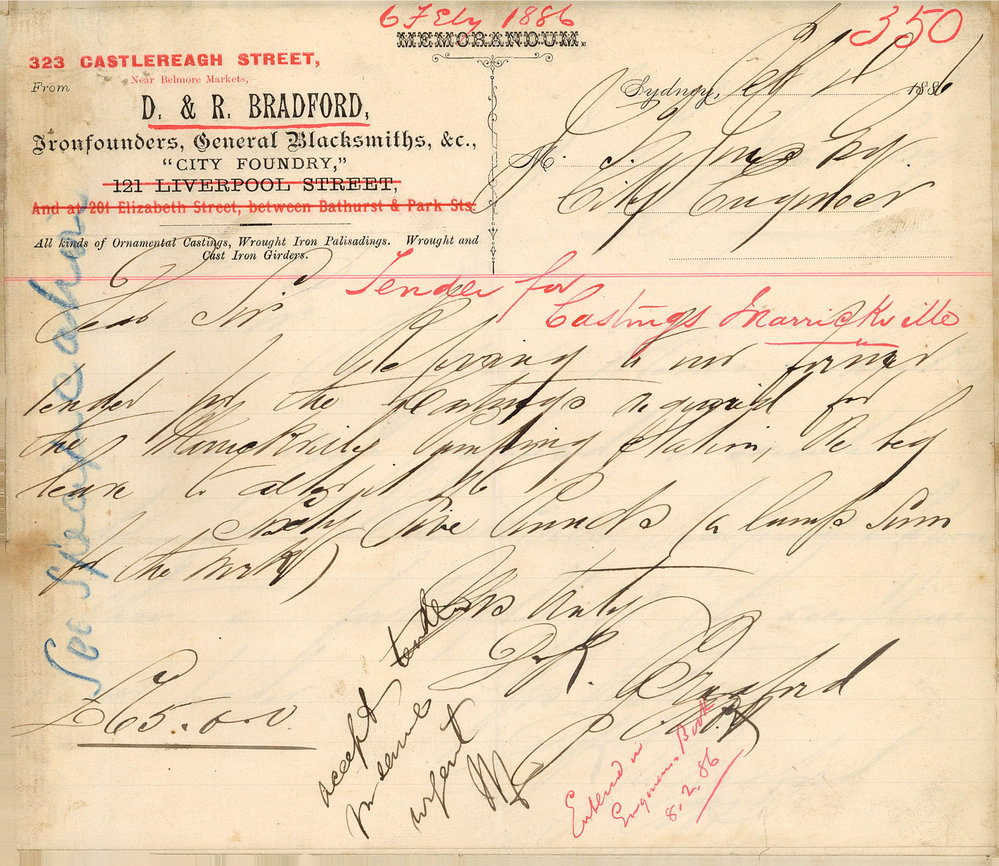 6 Feby 1886
350
MEMORANDUM.
323 CASTLEREAGH STREET,
Near Belmore Markets,
From
D. & R. BRADFORD,
Ironfounders, General Blacksmiths, &c.,
"CITY FOUNDRY,"
121 LIVERPOOL STREET,
And at 201 Elizabeth Street, between Bathurst & Park Sts.
All kinds of Ornamental Castings, Wrought Iron Palisadings. Wrought and
Cast Iron Girders.
Sydney, Feb 1886
M.
City Engineer
Tender for
Castings Marrickville
Dear Sir
Refering to our former
tender for the Castings required for
the Marrickville Pumping Station, We beg
leave to alter it to
Sixty Five Pounds (a lump sum
for the work)
Yrs truly
D & R Bradford
£65.0.0
See Specification
accept tender
urgent
Entered in
Book
8.2.86